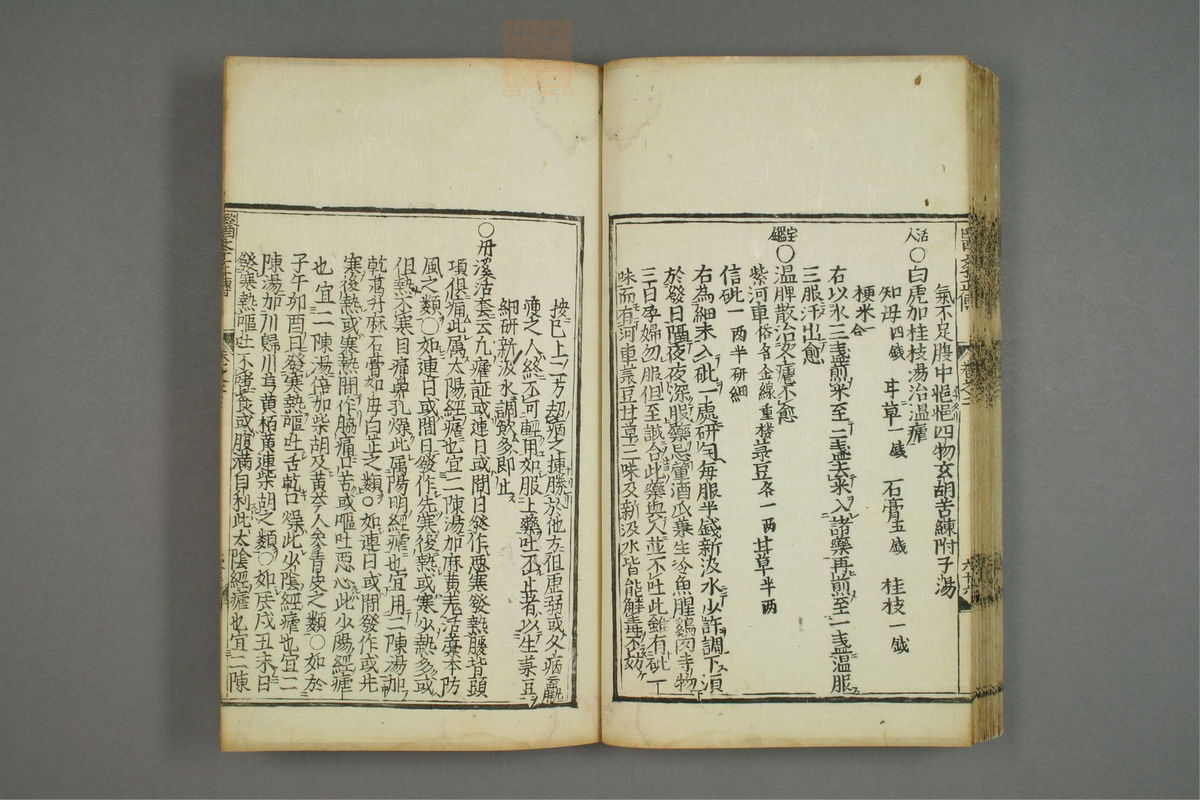 氣不足腹中悒悒四物玄胡苦練附子湯
活人
○白虎加桂枝湯治溫瘧
知母四戔 甘草一戔 石膏五戔 桂枝一戔
粳米一合
右以水三盞煎米至二盞去米入諸藥再煎至一盞溫服
三服汗出愈
寶鑑
○溫脾散治久瘧不愈
紫河車俗名金線重樓 菉豆各一两 甘草半两
信砒一两半研細
右為細末入砒一處研勻每服半戔新汲水少許調下須
於發日隔夜夜深服藥忌葷酒瓜菓生冷魚腥鷄肉等物
三日孕婦勿服但至誠合此藥與人並不吐此雖有砒一
味而有河車菉豆甘草三味及新汲水皆能解毒不妨
按已上二方劫病之捷勝於他方但虛弱或久病羸
瘦之人終不可輕用如服上藥吐不止者以生菉豆
細研新汲水調飲多即止
○丹溪活套云凢瘧証或連日或間日發作惡寒發熱腰背頭
項俱痛此属太陽經瘧也宜二陳湯加麻黄羌活藁本防
風之類○如連日或間日發作先寒後熱或寒少熱多或
但熱不寒目痛鼻孔燥此属陽明經瘧也宜用二陳湯加
乾葛升麻石膏知母白芷之類○如連日或間發作或先
寒後熱或寒熱間作脇痛口苦或嘔吐惡心此少陽經瘧
也宜二陳湯倍加柴胡及黄芩人参青皮之類○如於
子午夘酉日發寒熱嘔吐舌乾口燥此少陰經瘧也宜二
陳湯加川歸川芎黄栢黄連柴胡之類○如辰戌丑未日
發寒熱嘔吐不嗜食或腹滿自利此太陰經瘧也宜二陳